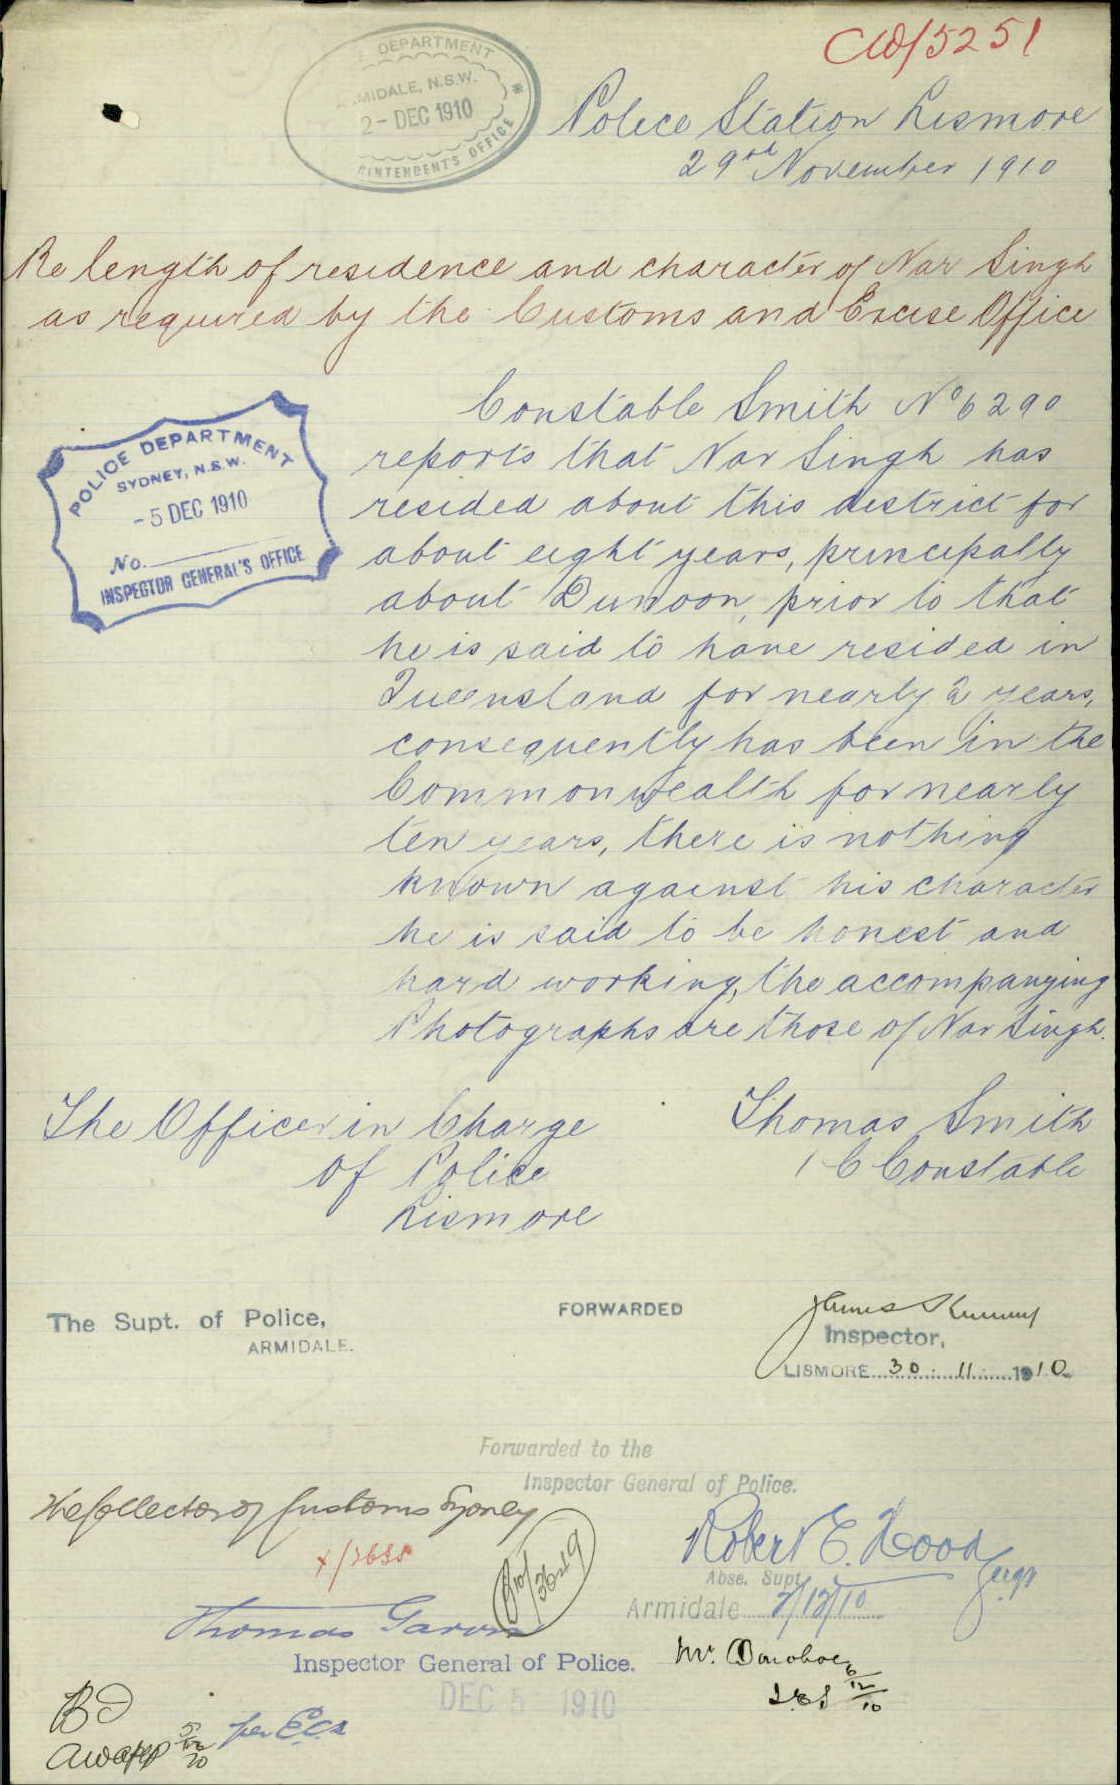 C10/5251
DEPARTMENT
MIDALE, N.S.W.
2- DEC 1910
RINTENDENTS OFFICE
Police Station Lismore
29nd November 1910
Re length of residence and character of Nar Singh
as required by the Customs and Excise Office
POLICE DEPARTMENT
SYDNEY, N.S.W.
-5 DEC 1910
No.
INSPECTOR GENERAL'S OFFICE
Constable Smith No 6290
reports that Nar Singh has
resided about this district for
about eight years, principally
about Dunoon, prior to that
he is said to have resided in
Queensland for nearly 2 years,
consequently has been in the
Commonwealth for nearly
ten years, there is nothing
known against his character
he is said to be honest and
hard working, the accompanying
Photographs are those of Nar Singh.
The Officer in Charge
of Police
Lismore
Thomas Smith
1 C Constable
The Supt. of Police,
ARMIDALE.
FORWARDED
James
Inspector,
LISMORE 30 . 11 . 1910
Forwarded to the
Inspector General of Police.
The Collector of Customs Sydney
Robert E. Wood
Sergt
Abse. Supt.
Armidale 2/12/10
Thomas Garvin
Inspector General of Police.
DEC 5 1910
Mr. Donohoe
6/12/10
5/12/10
per